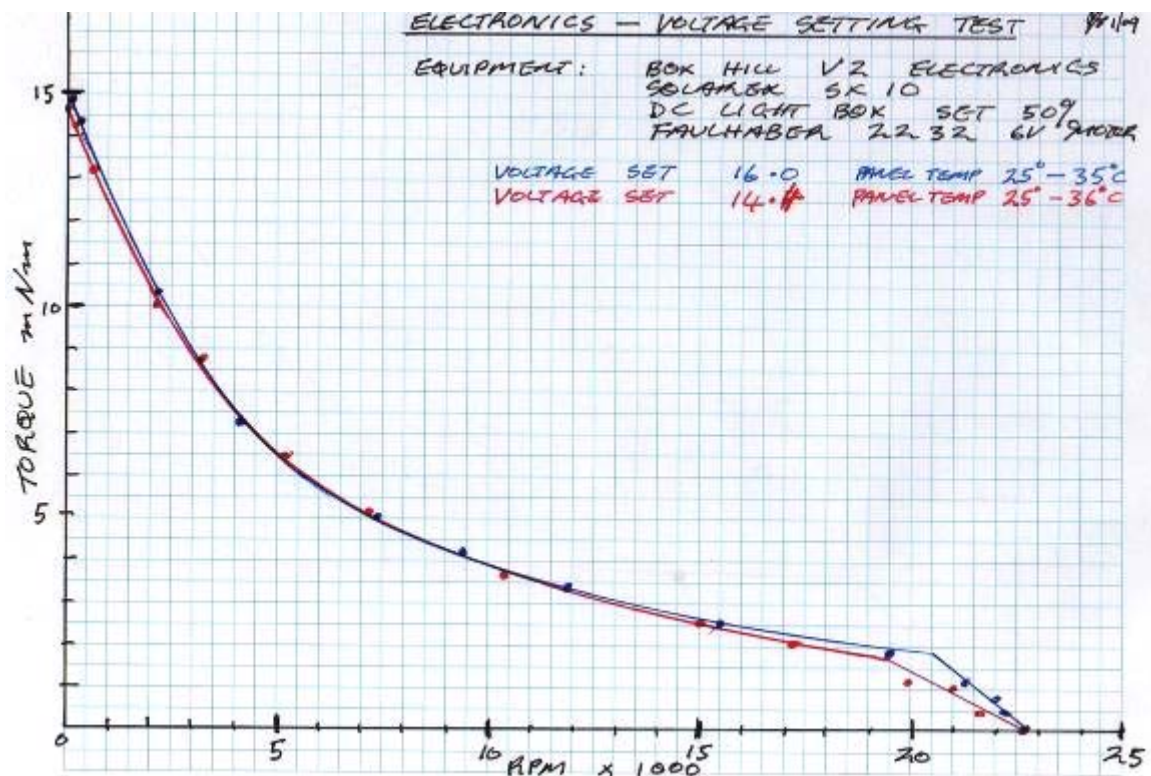 ELECTRONICS – VOLTAGE SETTING TEST
EQUIPMENT: BOX HILL V2 ELECTRONICS
SOLAREX SX 10
DC LIGHT BOX SET 50%
FAULHABER 2232 6V MOTOR
VOLTAGE SET 16.0 PANEL TEMP 25° – 35°C
VOLTAGE SET 14. PANEL TEMP 25° – 36°C
15
10
5
TORQUE mNm
0 5 10 15 20 25
RPM x 1000